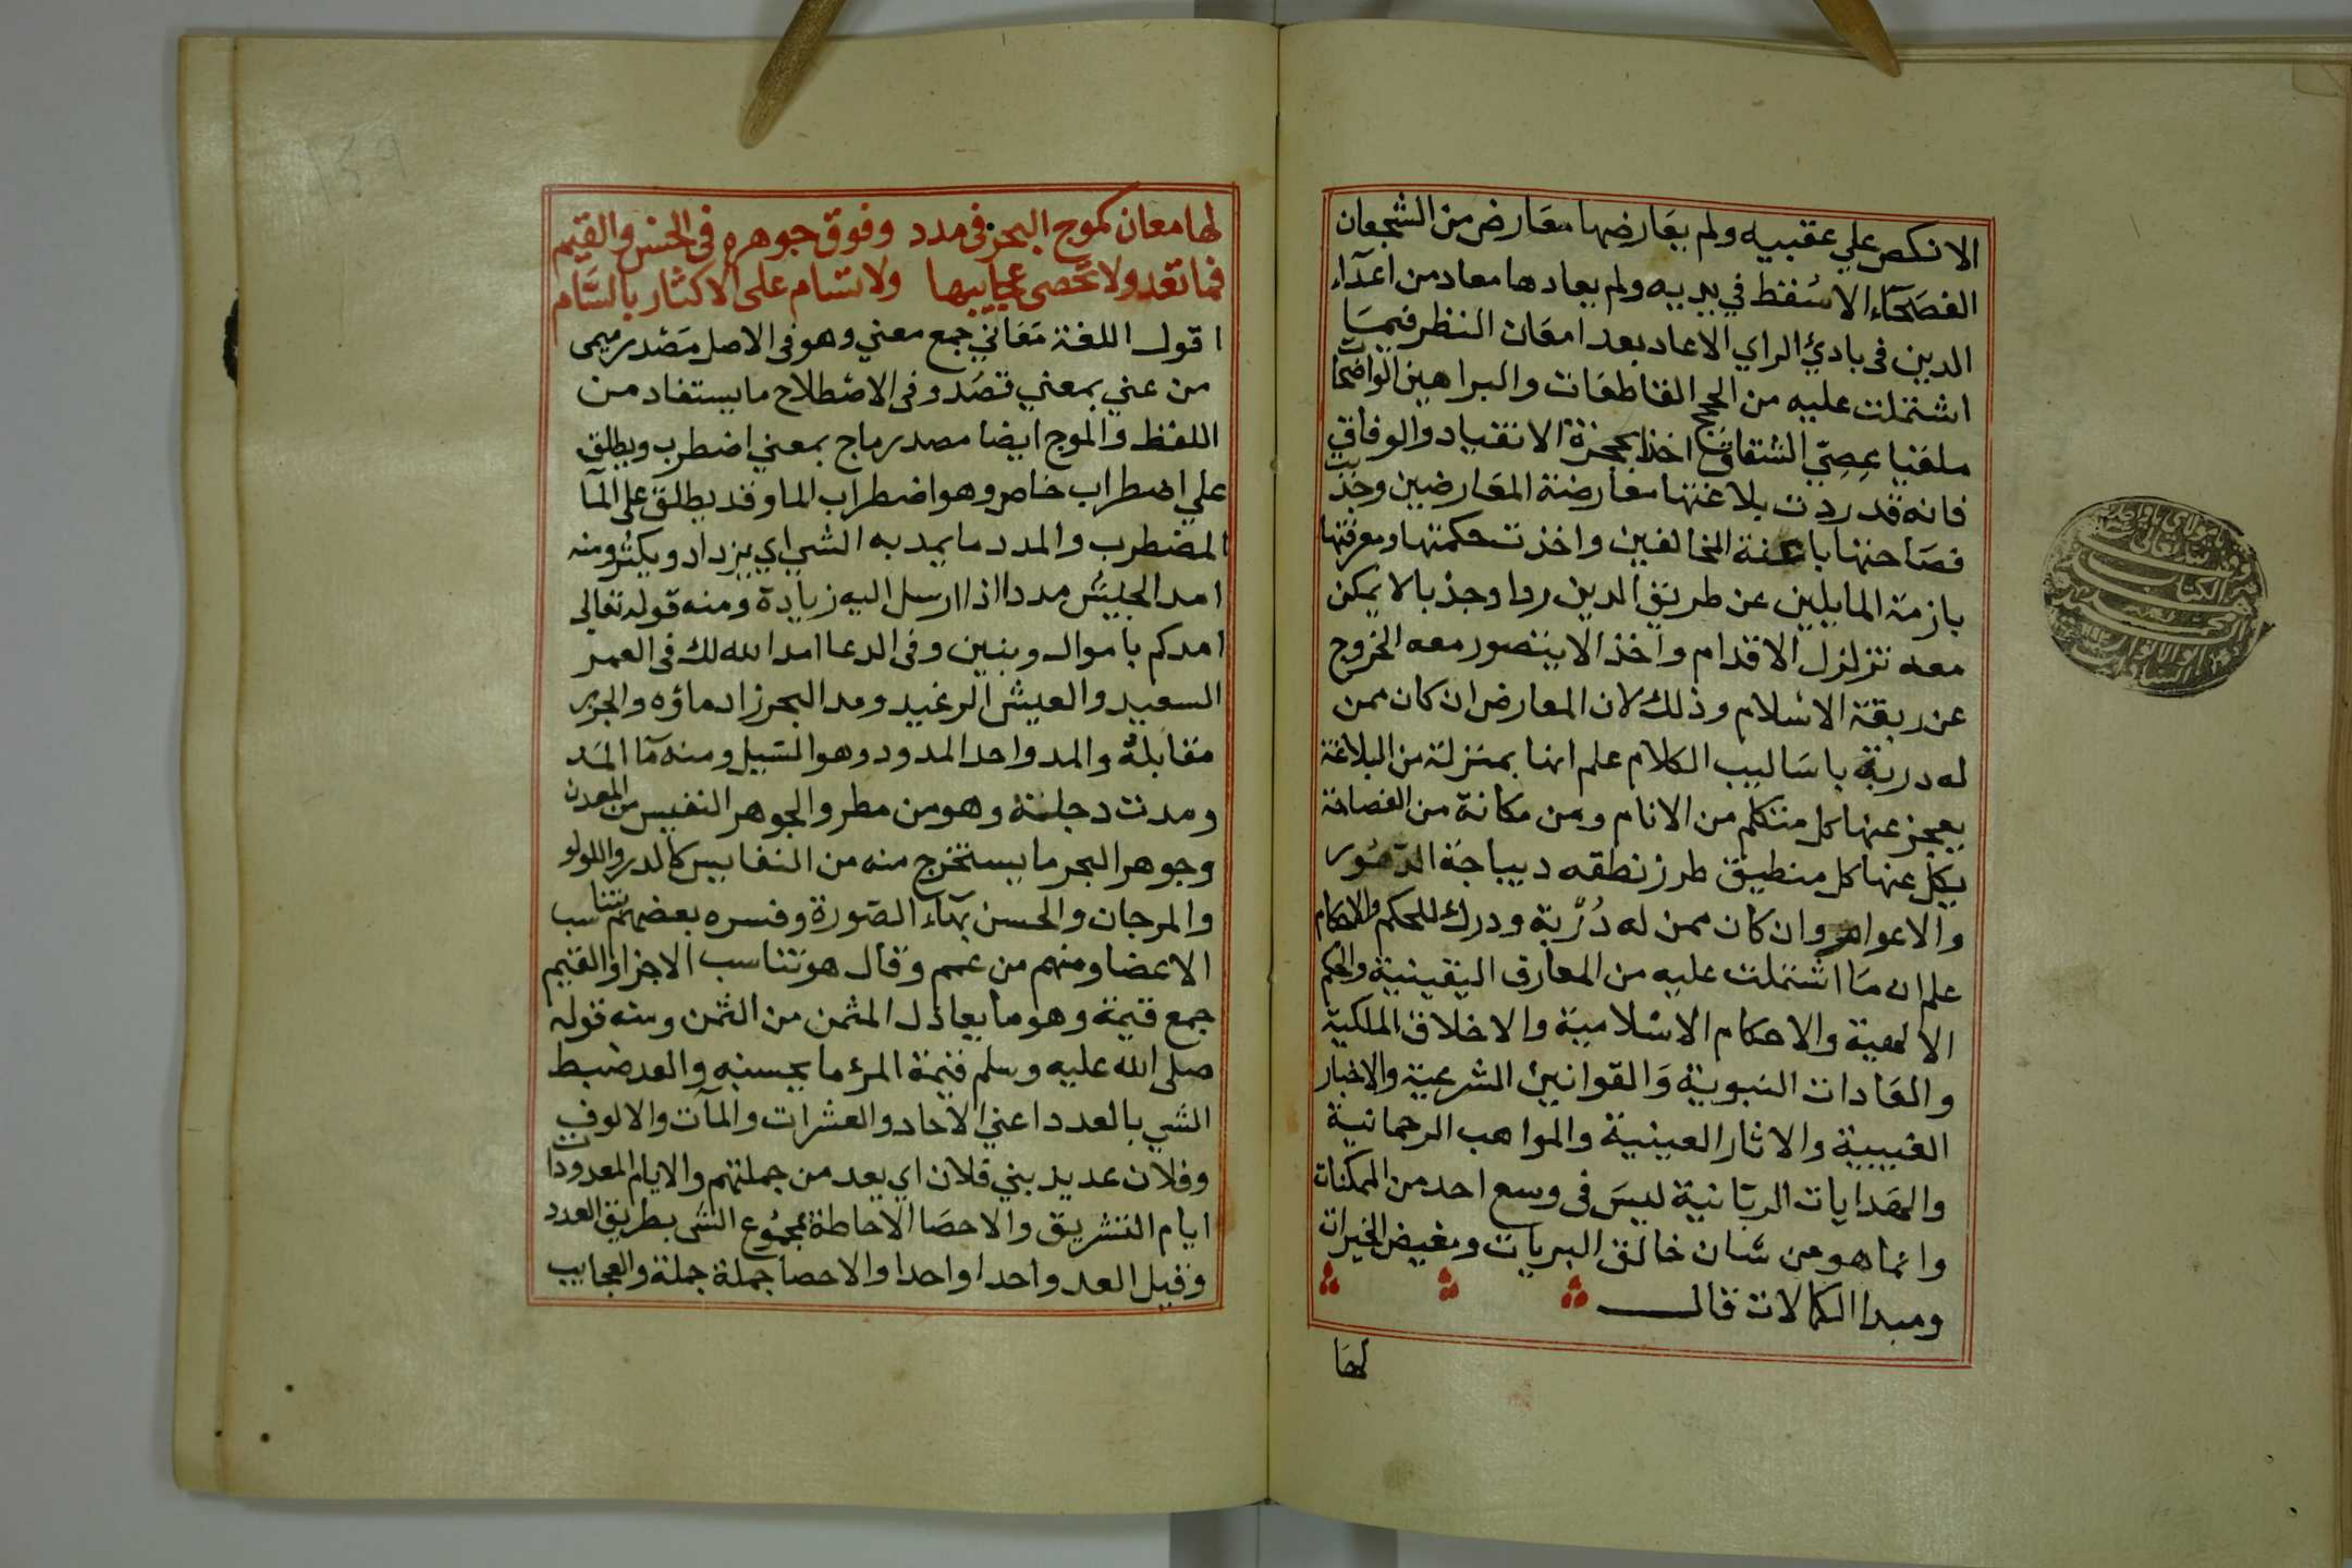 الا نكص علي عقبيه ولم يعارضها معارض من الشجعان
الفصحآء الا سقط في يديه ولم يعادها معاد من اعدآء
الدين في بادئ الراي الا عاد بعد امعان النظر فيما
اشتملت عليه من الحجج القاطعات والبراهين الواضحات
ملقيا عصي الشقاق اخذا بحجزة الانقياد والوفاق
فانه قد ردت بلاغتها معارضة المعارضين وجذبت
فصاحتها باعنة المخالفين واخذت حكمتها ومعرفتها
بازمة المايلين عن طريق الدين ردا وجذبا لا يمكن
معه تزلزل الاقدام واخذ الا يتصور معه الخروج
عن ربقة الاسلام وذلك لان المعارض ان كان ممن
له دربة باساليب الكلام علم انها بمنزلة من البلاغة
يعجز عنها كل متكلم من الانام ومن مكانة من الفصاحة
يكل عنها كل منطيق طرز نطقه ديباجة الدهور
والاعوام وان كان ممن له دُرْبة ودرك للحكم والاحكام
علم ان ما اشتملت عليه من المعارف اليقينية والحكم
الالهية والاحكام الاسلامية والاخلاق الملكية
والعادات النبوية والقوانين الشرعية والاخبار
الغيبية والاثار العينية والمواهب الرحمانية
والهدايات الربانية ليس في وسع احد من الممكنات
وانما هو من شان خالق البريات ومفيض الخيرات
ومبدا الكمالات قال
لها
لها معان كموج البحر في مدد وفوق جوهره في الحسن والقيم
فما تعد ولا تحصى عجايبها ولا تسام على الاكثار بالسام
اقول اللغة معاني جمع معني وهو في الاصل مصدر ميمي
من عني بمعني قصد وفي الاصطلاح ما يستفاد من
اللفظ والموج ايضا مصدر ماج بمعني اضطرب ويطلق
علي اضطراب خاص وهو اضطراب الما وقد يطلق على المآ
المضطرب والمدد ما يمد به الشي اي يزداد ويكثر ومنه
امد الجيش مددا اذا ارسل اليه زيادة ومنه قوله تعالى
امدكم باموال وبنين وفي الدعا امد الله لك في العمر
السعيد والعيش الرغيد ومد البحر زاد ماؤه والجزر
مقابلة والمد واحد المدود وهو السيل ومنه ما المد
ومدت دجلة وهو من مطر والجوهر النفيس من المعدن
وجوهر البحر ما يستخرج منه من النفايس كالدر واللولو
والمرجان والحسن بهآء الصورة وفسره بعضهم بتناسب
الاعضا ومنهم من عمم وقال هو تناسب الاجزا والقيم
جمع قيمة وهو ما يعادل المثمن من الثمن ومنه قوله
صلى الله عليه وسلم قيمة المرء ما يحسنه والعد ضبط
الشي بالعدد اعني الاحاد والعشرات والمآت والالوف
وفلان عديد بني فلان اي يعد من جملتهم والايام المعدودات
ايام التشريق والاحصا الاحاطة بمجموع الشي بطريق العدد
وقيل العد واحدا واحدا والاحصا جملة جملة والعجايب